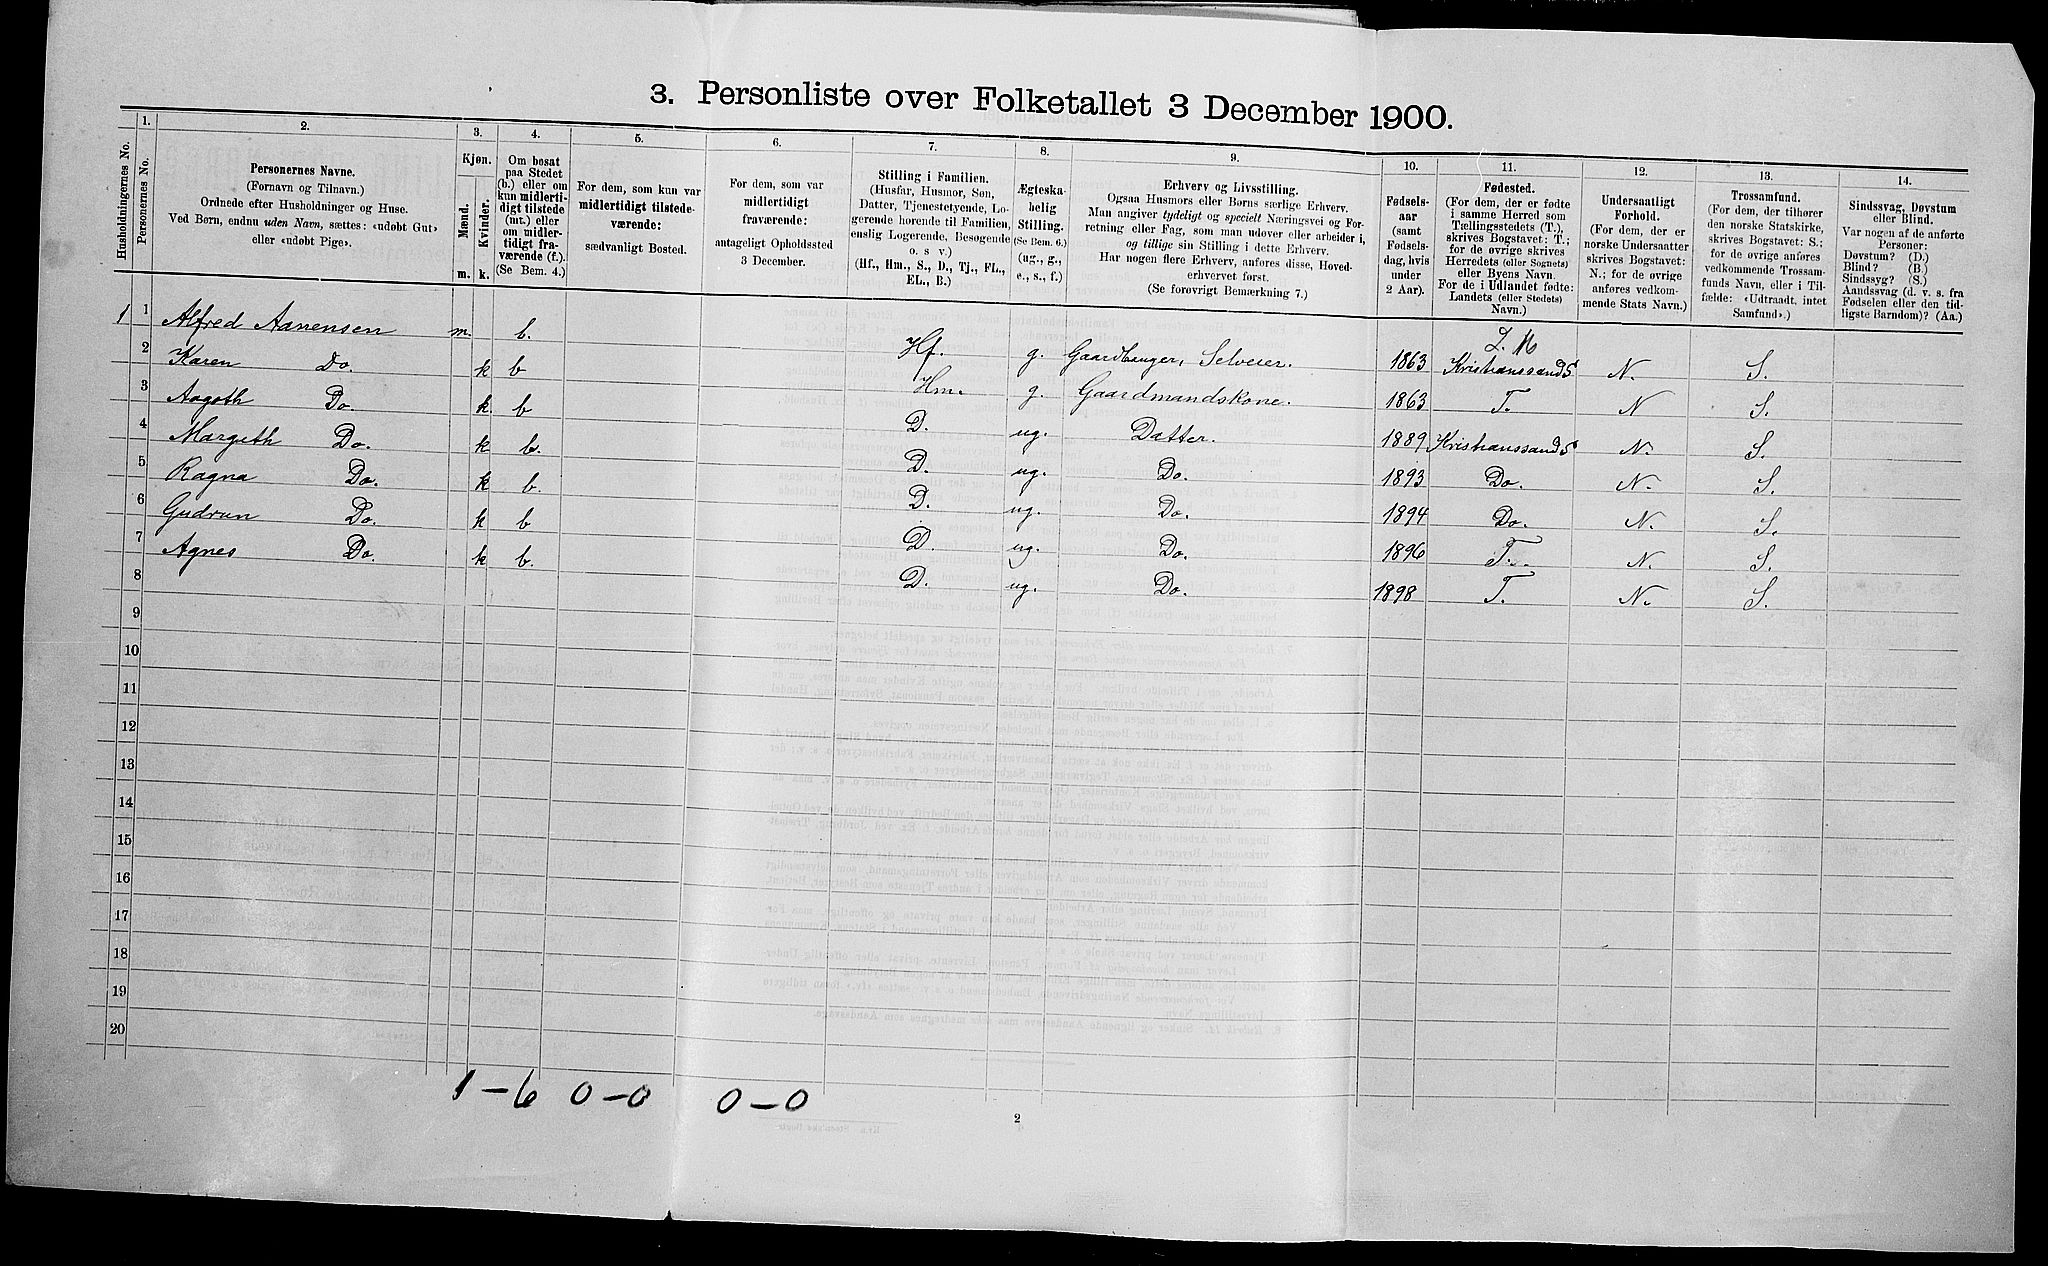 3. Personliste over Folketallet 3 December 1900.
Husholdningernes No.
1.
Personernes No.
2.
Personernes Navne.
(Fornavn og Tilnavn.)
Ordnede efter Husholdninger og Huse.
Ved Børn, endnu uden Navn, sættes: «udøbt Gut»
eller «udøbt Pige».
3.
Kjøn.
Mænd.
Kvinder.
m.
k.
4.
Om bosat
paa Stedet
(b.) eller om
kun midlerti-
digt tilstede
(mt.) eller
om midler-
tidigt fra-
værende (f.).
(Se Bem. 4.)
5.
For dem, som kun var
midlertidigt tilstede-
værende:
sædvanligt Bosted.
6.
For dem, som var
midlertidigt
fraværende:
antageligt Opholdssted
3 December.
7.
Stilling i Familien.
(Husfar, Husmor, Søn,
Datter, Tjenestetyende, Lo-
gerende hørende til Familien,
enslig Logerende, Besøgende
o. s v.)
(Hf., Hm., S., D., Tj., FL.,
EL., B.)
8.
Ægteska-
belig
Stilling.
(Se Bem. 6.)
(ug., g.,
e., s., f.)
9.
Erhverv og Livsstilling.
Ogsaa Husmors eller Børns særlige Erhverv.
Man angiver tydeligt og specielt Næringsvei og For-
retning eller Fag, som man udover eller arbeider i,
og tillige sin Stilling i dette Erhverv.
Har nogen flere Erhverv, anføres disse, Hoved-
erhvervet først.
(Se forøvrigt Bemærkning 7.)
10.
Fødsels-
aar
(samt
Fødsels-
dag, hvis
under
2 Aar).
11.
Fødested.
(For dem, der er fødte
i samme Herred som
Tællingsstedets (T.),
skrives Bogstavet: T.;
for de øvrige skrives
Herredets (eller Sognets)
eller Byens Navn.
For de i Udlandet fødte:
Landets (eller Stedets)
Navn.)
12.
Undersaatligt
Forhold.
(For dem, der er
norske Undersaatter
skrives Bogstavet:
N.; for de øvrige
anføres vedkom-
mende Stats Navn.)
13.
Trossamfund.
(For dem, der tilhører
den norske Statskirke,
skrives Bogstavet: S.;
for de øvrige anføres
vedkommende Trossam-
funds Navn, eller i Til-
fælde: «Udtraadt, intet
Samfund».)
14.
Sindssvag, Døvstum
eller Blind.
Var nogen af de anførte
Personer:
Døvstum? (D.)
Blind? (B.)
Sindssyg? (S.)
Aandssvag (d. v. s. fra
Fødselen eller den tid-
ligste Barndom)? (Aa.)
1 1 Alfred Aanensen m. b. Hf. g. Gaardbruger, Selveier. 1863 Kristianssand S N. S.
2 Karen Do. k b Hm. g. Gaardmandskone. 1863 T. N S.
3 Aagoth Do. k. b D. ug. Datter. 1889 Kristianssand S N. S.
4 Margith Do. k b. D. ug. Do. 1893 Do. N. S.
5 Ragna Do. k b. D. ug. Do. 1894 Do. N. S.
6 Gudrun Do. k b D. ug. Do. 1896 T. N. S.
7 Agnes Do. k b. D. ug. Do. 1898 T. N. S.
8
9
10
11
12
13
14
15
16
17
18
19
20
1 – 6 0 – 0 0 – 0
2